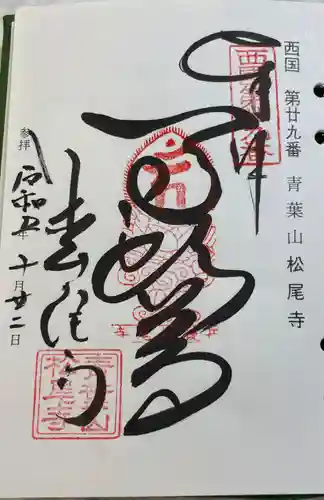 西国 第廿九番 青葉山松尾寺
奉拝
馬頭尊
松尾寺
参拝
令和五年十月廿二日
青葉山
松尾寺